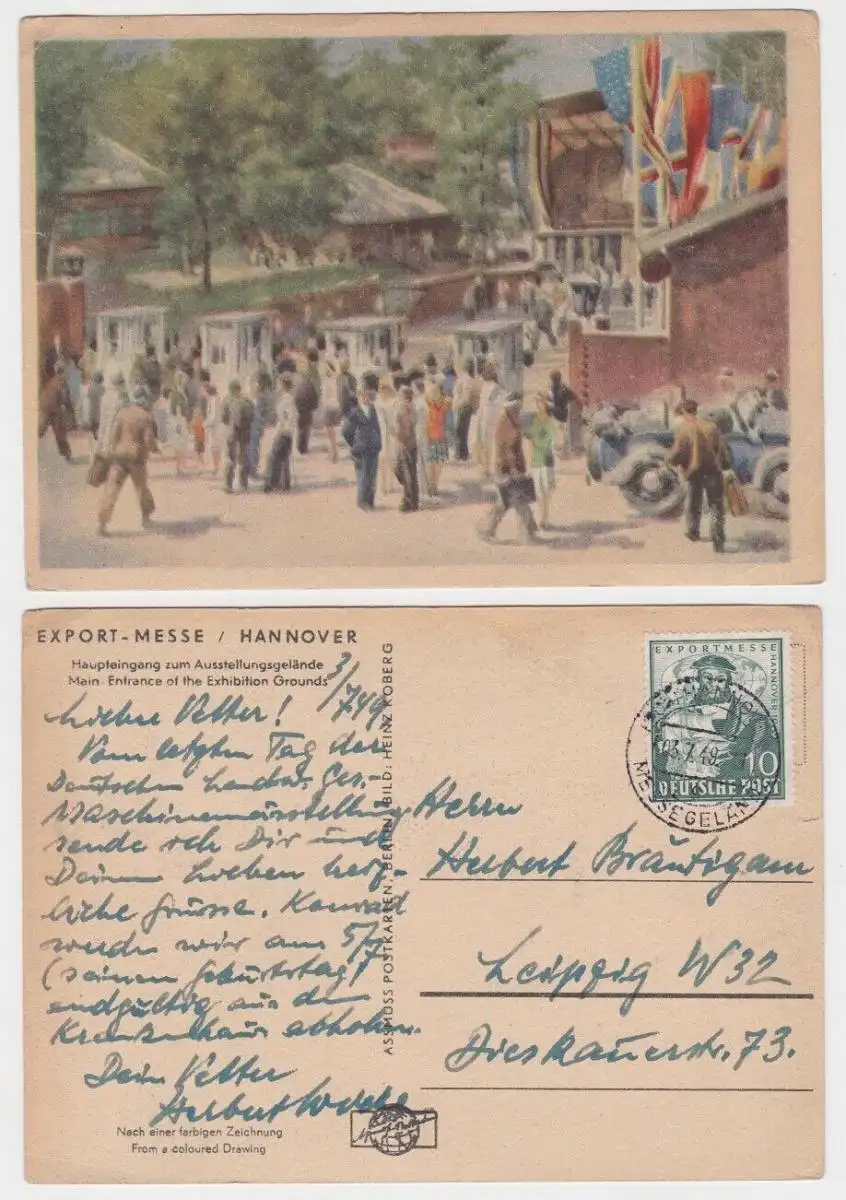 EXPORT-MESSE / HANNOVER
Haupteingang zum Ausstellungsgelände
Main Entrance of the Exhibition Grounds
3/749
Lieber Vetter!
Vom letzten Tag der
Deutschen Landw. Ges.-
Maschinenausstellung
sende ich Dir und
Deinen Lieben herz-
liche Grüsse. Konrad
werden wir am 5/7
(seinem Geburtstag)
endgültig aus dem
Krankenhaus abholen.
Dein Vetter
Herbert
Nach einer farbigen Zeichnung
From a coloured Drawing
ASSMUSS POSTKARTEN, BERLIN, BILD: HEINZ KOBERG
EXPORTMESSE
HANNOVER
10
DEUTSCHE POST
HANNOVER
03.7.49
MESSEGELÄNDE
Herrn
Herbert Bräutigam
Leipzig W32
Dieskauerstr. 73.